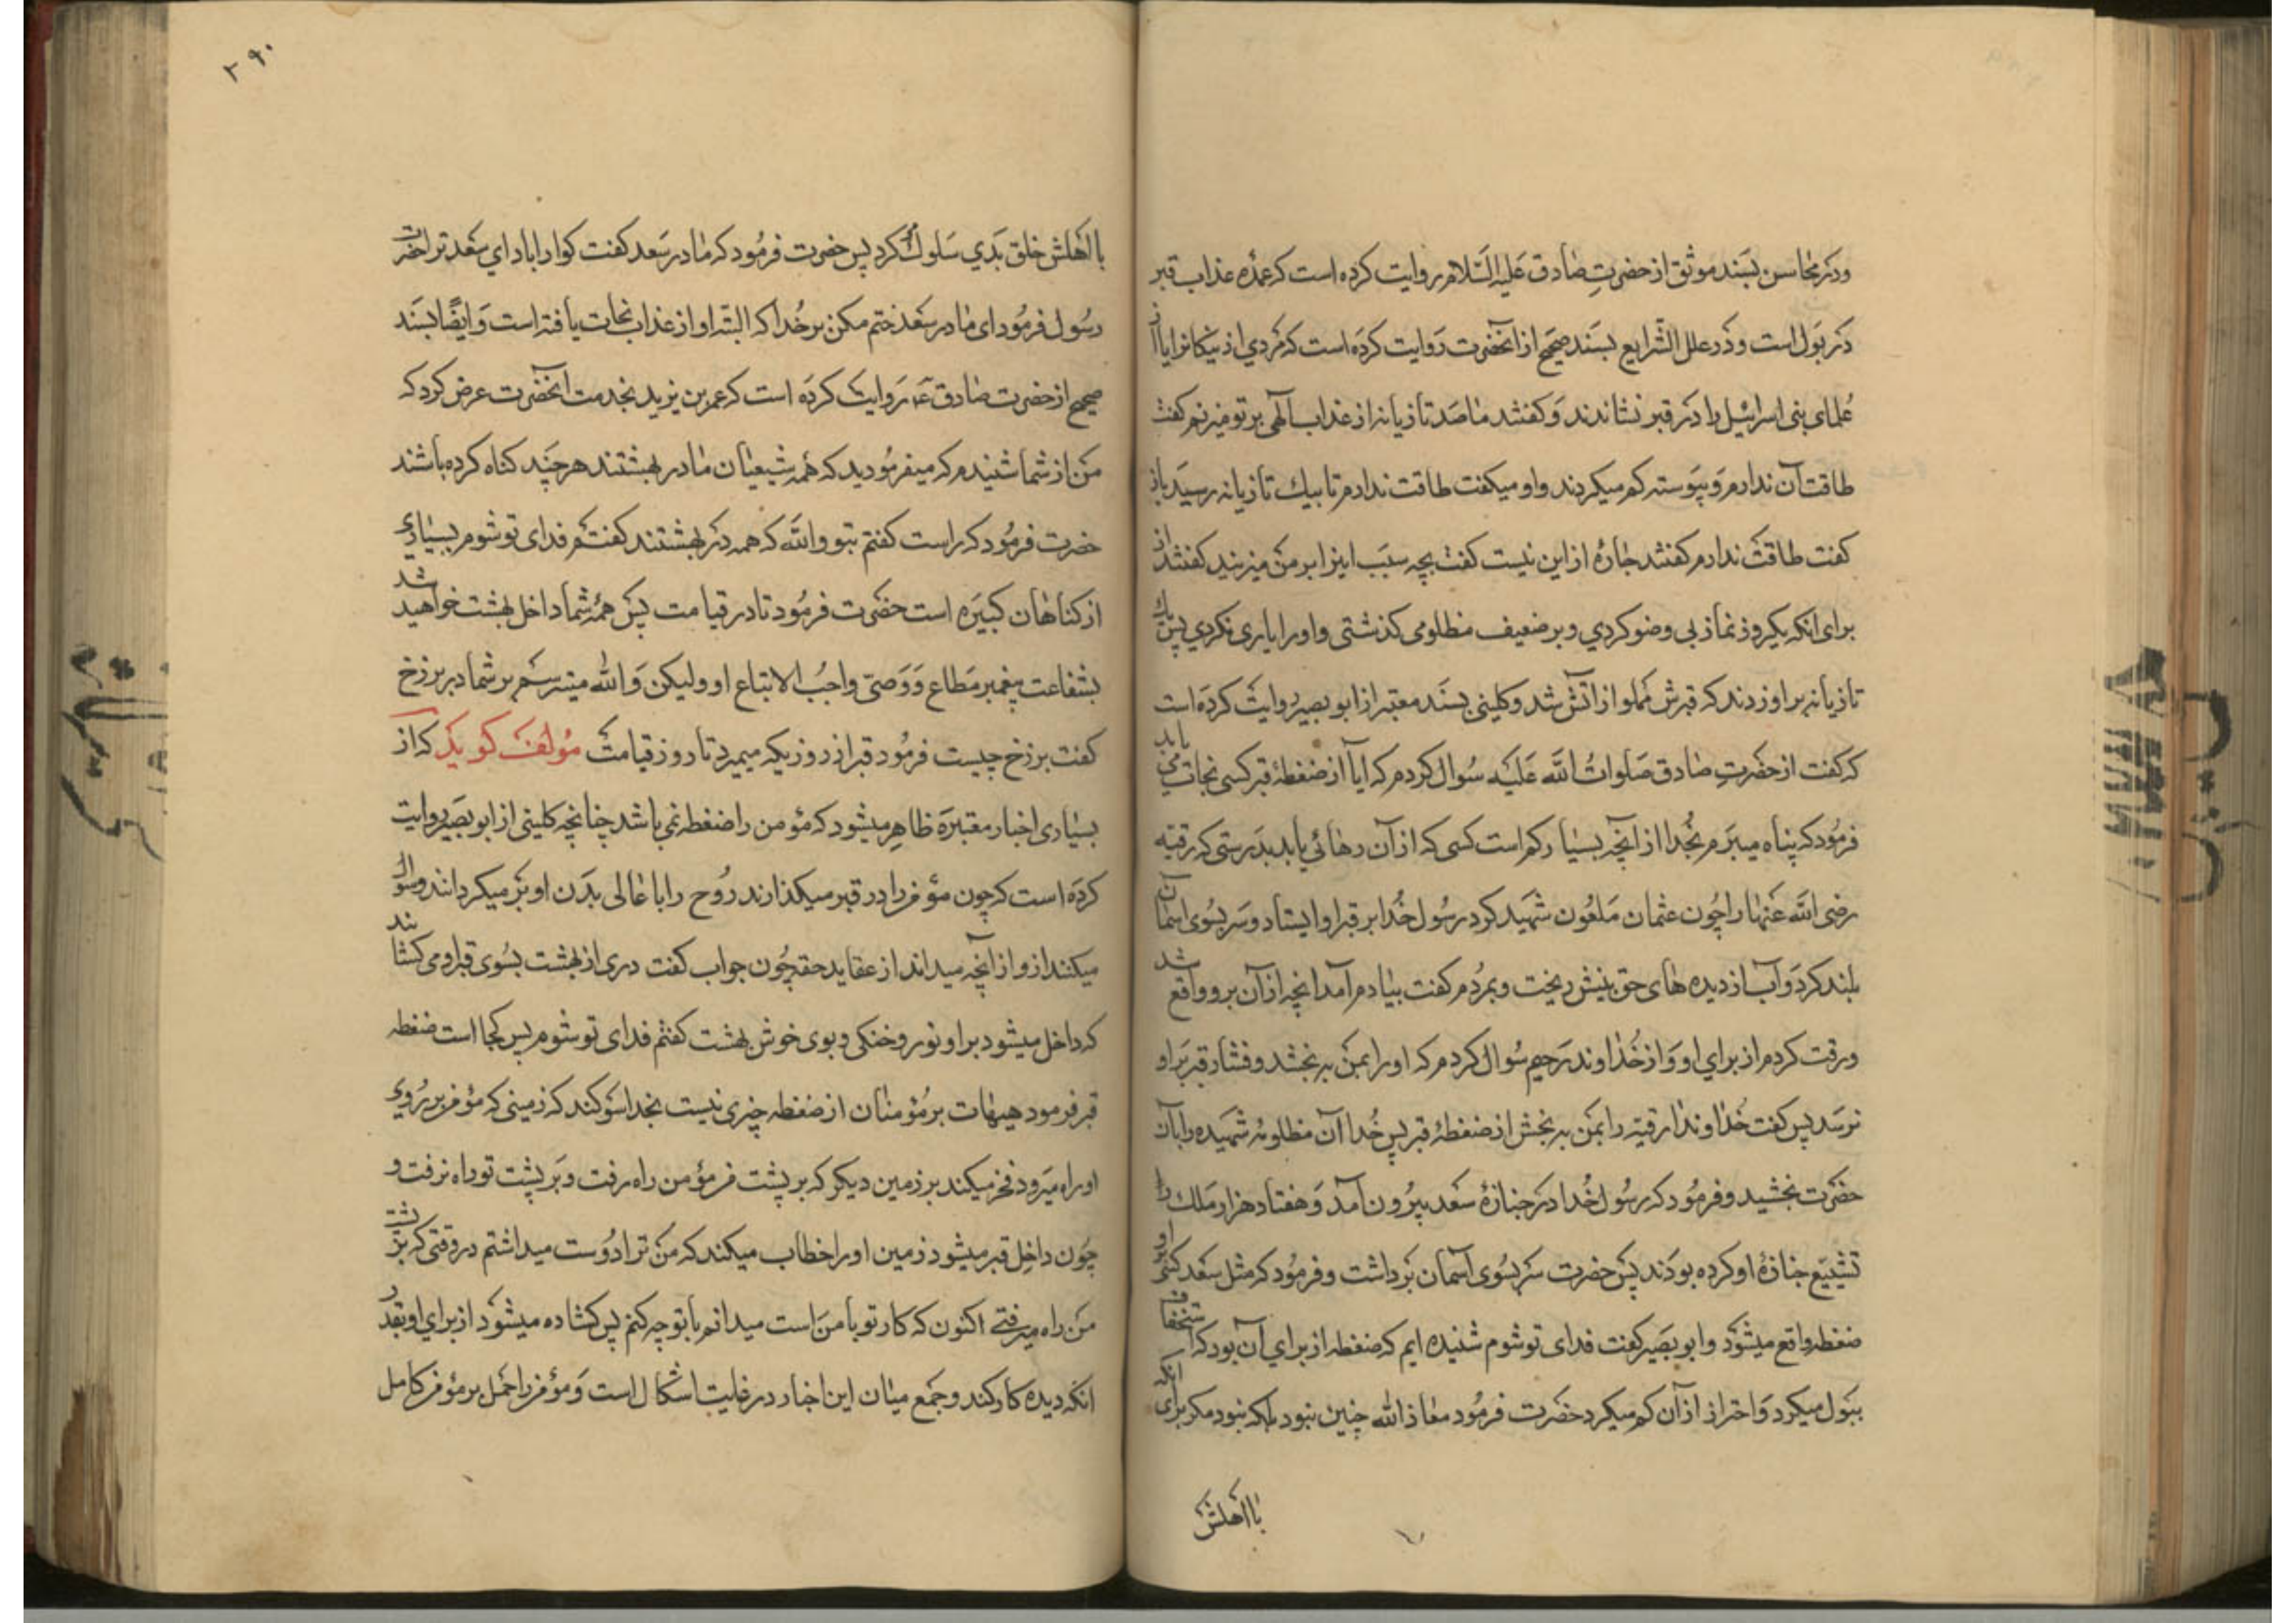 ودر محاسن بسند موثق از حضرتِ صادق عَلیه السّلام روایت کرده است که عمدهٔ عذاب قبر
در بَول است و دَر علل الشّرایع بسَند صحیح از انحضرت رَوایت کرده است که مَردي از نیکان را یا از
عُلمای بنی اسرائیل را در قبر نشاندند وَ کفتند ما صَد تازیانه از عذاب الٓهی بر تو میزنیم کفت
طاقت آن ندارم وَ پیَوسته کم میکردند واو میکفت طاقت ندارم تا بیك تازیانه رسیَد باز
کفت طاقتْ ندارم کفتند چارهٔ از این نیست کفت بچه سبَب اینرا بر من میزنید کفتند از
برای انکه یکروز نماز بی وضو کردي و بر ضعیف مظلومی کذشتی واورا یاری نکردي پس یك
تازیانه بر او زدند که قبرش مملو از اتَش شد و کلینی بسَند معتبر از ابو بصیر روایت کردَه است
که کفت از حضَرتِ صادق صَلواتُ اللّه عَلیَه سُوال کردم که ایا از ضغطهٔ قبر کسی نجات می یابد
فرمُود که پناه میبَرَم بخُدا از انچه بسیار کم است کسی که از آن رهائي یابد بدَرستی که رقیّه
رضی اللّه عَنها را چُون عثمان مَلعُون شهَید کرد رسُول خُدا بر قبر او ایستاد و سَر بسُوی اسمان
بلند کردَ و آب از دیده های حق بینش ریخت و بمرُدم کفت بیادم آمد انچه از آن برو واقع شد
و رقت کردم از براي او وَ از خُداوند رَحیم سُوال کردم که او را بمن به بخشد و فشار قبر بَر او
نرسَد پس کفت خُداوندا رقیّه را بمَن به بخش از ضغطهٔ قبر پس خُدا آن مظلومهٔ شهَیده را بآن
حضَرت بخشید و فرمُود که رسُول خُدا در جنازهٔ سعَد بیرُون آمد وَ هفتاد هزار مَلك را
تشییَع جنازهٔ او کرده بودَند پس حضَرت سَر بسُوی آسمان بَرداشت و فرمُود که مثل سعَد کسَی را
ضغطه واقع میشوَد و ابو بصَیر کفت فدای تو شوم شنیده ایم که ضغطه از براي آن بود که استخفاف
ببَول میکرد وَ احتراز از آن کم میکرد حضَرت فرمُود معاذ اللّه چنین نبود بلکه نبود مکر برای انکه
با اهلش
۲۹۰
با اهلش خلق بدَي سَلوك کرد پس حضرت فرمُود که مادر سَعد کفت کوارا باد اي سعَد ترا حضرت
رسُول فرمُود ای مادر سعَد ختم مکن بر خُدا که البتّه او از عذاب نجات یافته است وَ ایضًا بسَند
صحیح از حضرت صادق عَ روایت کردَه است که عمر بن یزید بخدمت انحضَرت عرض کرد که
مَن از شما شنیدم که میفرمُودید که همه شیعیان ما در بهشتند هر چَند کناه کرده باشند
حضرت فرمُود که راست کفتم بتو واللّه که همه در بهشتند کفتم فدای تو شوم بسیاري
از کناهان کبیَره است حضَرت فرمُود تا در قیامت پس همهٔ شما داخل بهشت خواهید شد
بشفاعت پیغمبر مَطاع وَ وَصیّ واجبُ الاتباع او ولیکن وَ اللّه میترسَم بر شما در برزخ
کفت برزخ چیست فرمُود قبر از روزیکه میمیرد تا روز قیامت مُولف کویَد که از
بسیاری اخبار معتبرَه ظاهِر میشود که مؤمن را ضغطه نمی باشد چنانچه کلینی از ابو بصَیر روایت
کردَه است که چون مؤمن را در قبر میکذارند رُوح را با عالی بدَن او بَر میکردانند و سُوال
میکنند از و از آنچه میداند از عقاید حقه چُون جواب کفت دری از بهشت بسُوی قبر او می کشایند
که داخل میشود بر او نور و خنکی و بوی خوش بهشت کفتم فدای تو شوم پس کجا است ضغطه
قبر فرمود هیهات بر مُؤمنان از ضغطه چیزی نیست بخدا سَوکند که زمینی که مؤمن بر رُوي
او راه میَرود فخر میکند بر زمین دیکر که بر پشت من مؤمن راه رفت وَ بَر پشت تو راه نرفت و
چُون داخِل قبر میشود زمین او را خطاب میکند که من ترا دُوست میداشتم در وقتی که بر پشت
من راه میرفتے اکنون که کار تو با من است میدانم با تو چه کنم پس کشاده میشوَد از براي او بقدر
انکه دیده کار کند و جمَع میان این اخبار در غایت اشکال است وَ مؤمن را حَمل بر مؤمن کامل